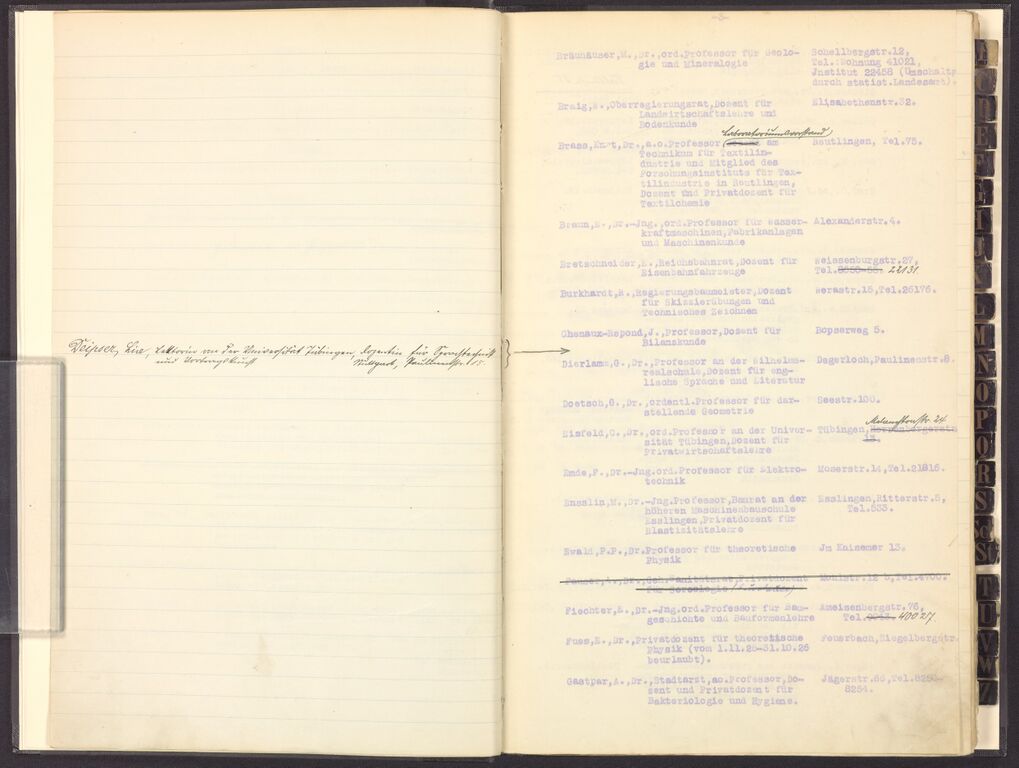 Deipser, Lise, Lektorin an der Universität Tübingen, Dozentin für Sprechtechnik
und Vortragskunst Stuttgart, Paulinenstr.
-3-
Bräuhäuser, M., Dr., ord.Professor für Geolo- Schellbergstr.12,
gie und Mineralogie Tel.:Wohnung 41021,
Jnstitut 22458 (Umschaltg
durch statist.Landesamt).
Braig, E., Oberregierungsrat,Dozent für Elisabethenstr.32.
Landwirtschaftslehre und
Bodenkunde
Laboratoriumsvorstand
Brass,Kurt,Dr.,a.o.Professor am Reutlingen, Tel.75.
Technikum für Textilin-
dustrie und Mitglied des
Forschungsinstituts für Tex-
tilindustrie in Reutlingen,
Dozent und Privatdozent für
Textilchemie
Braun,E.,Dr.-Jng.,ord.Professor für Wasser- Alexanderstr.4.
kraftmaschinen,Fabrikanlagen
und Maschinenkunde
Bretschneider,E.,Reichsbahnrat,Dozent für Weissenburgstr.27,
Eisenbahnfahrzeuge Tel. 22131.
Burkhardt,R.,Regierungsbaumeister,Dozent Werastr.15,Tel.26176.
für Skizzierübungen und
Technisches Zeichnen
Chenaux-Repond,J.,Professor,Dozent für Bopserweg 5.
Bilanzkunde
Dierlamm,G.,Dr.,Professor an der Wilhelms- Degerloch,Paulinenstr.8.
realschule,Dozent für eng-
lische Sprache und Literatur
Doetsch,G.,Dr.,ordentl.Professor für dar- Seestr.100.
stellende Geometrie
Melanchtonstr. 24
Eisfeld,C.,Dr.,ord.Professor an der Univer- Tübingen,Herrenbergerstr.
sität Tübingen,Dozent für 13.
Privatwirtschaftslehre
Emde,F.,Dr.-Jng.ord.Professor für Elektro- Moserstr.14,Tel.21816.
technik
Ensslin,M.,Dr.-Jng.Professor,Baurat an der Esslingen,Ritterstr.5,
höheren Maschinenbauschule Tel.533.
Esslingen,Privatdozent für
Elastizitätslehre
Ewald,P.P.,Dr.Professor für theoretische Jm Kaisemer 13.
Physik
Fauser,A.,Dr.,Geh.Sanitätsrat,Privatdozent Mohlstr.12 b,Tel.4700.
für Serologie
Fiechter,E.,Dr.-Jng.ord.Professor für Bau- Ameisenbergstr.76,
geschichte und Bauformenlehre Tel. 40027.
Fues,E.,Dr.,Privatdozent für theoretische Feuerbach,Siegelbergstr.
Physik (vom 1.11.25-31.10.26
beurlaubt).
Gastpar,A.,Dr.,Stadtarzt,ao.Professor,Do- Jägerstr.56,Tel.8250-
zent und Privatdozent für 8254.
Bakteriologie und Hygiene.
J
L
M
N
O
P
Q
R
S
Sch
St
T
U
V
W
Z